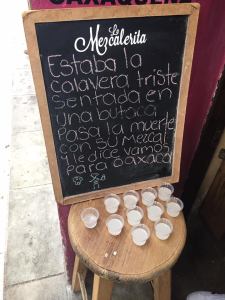 OAXAQUEÑA
La
Mezcalerita
Estaba la
calavera triste
sentada en
una butaca
Pasa la muerte
con su mezcal
y le dice vamos
para Oaxaca!